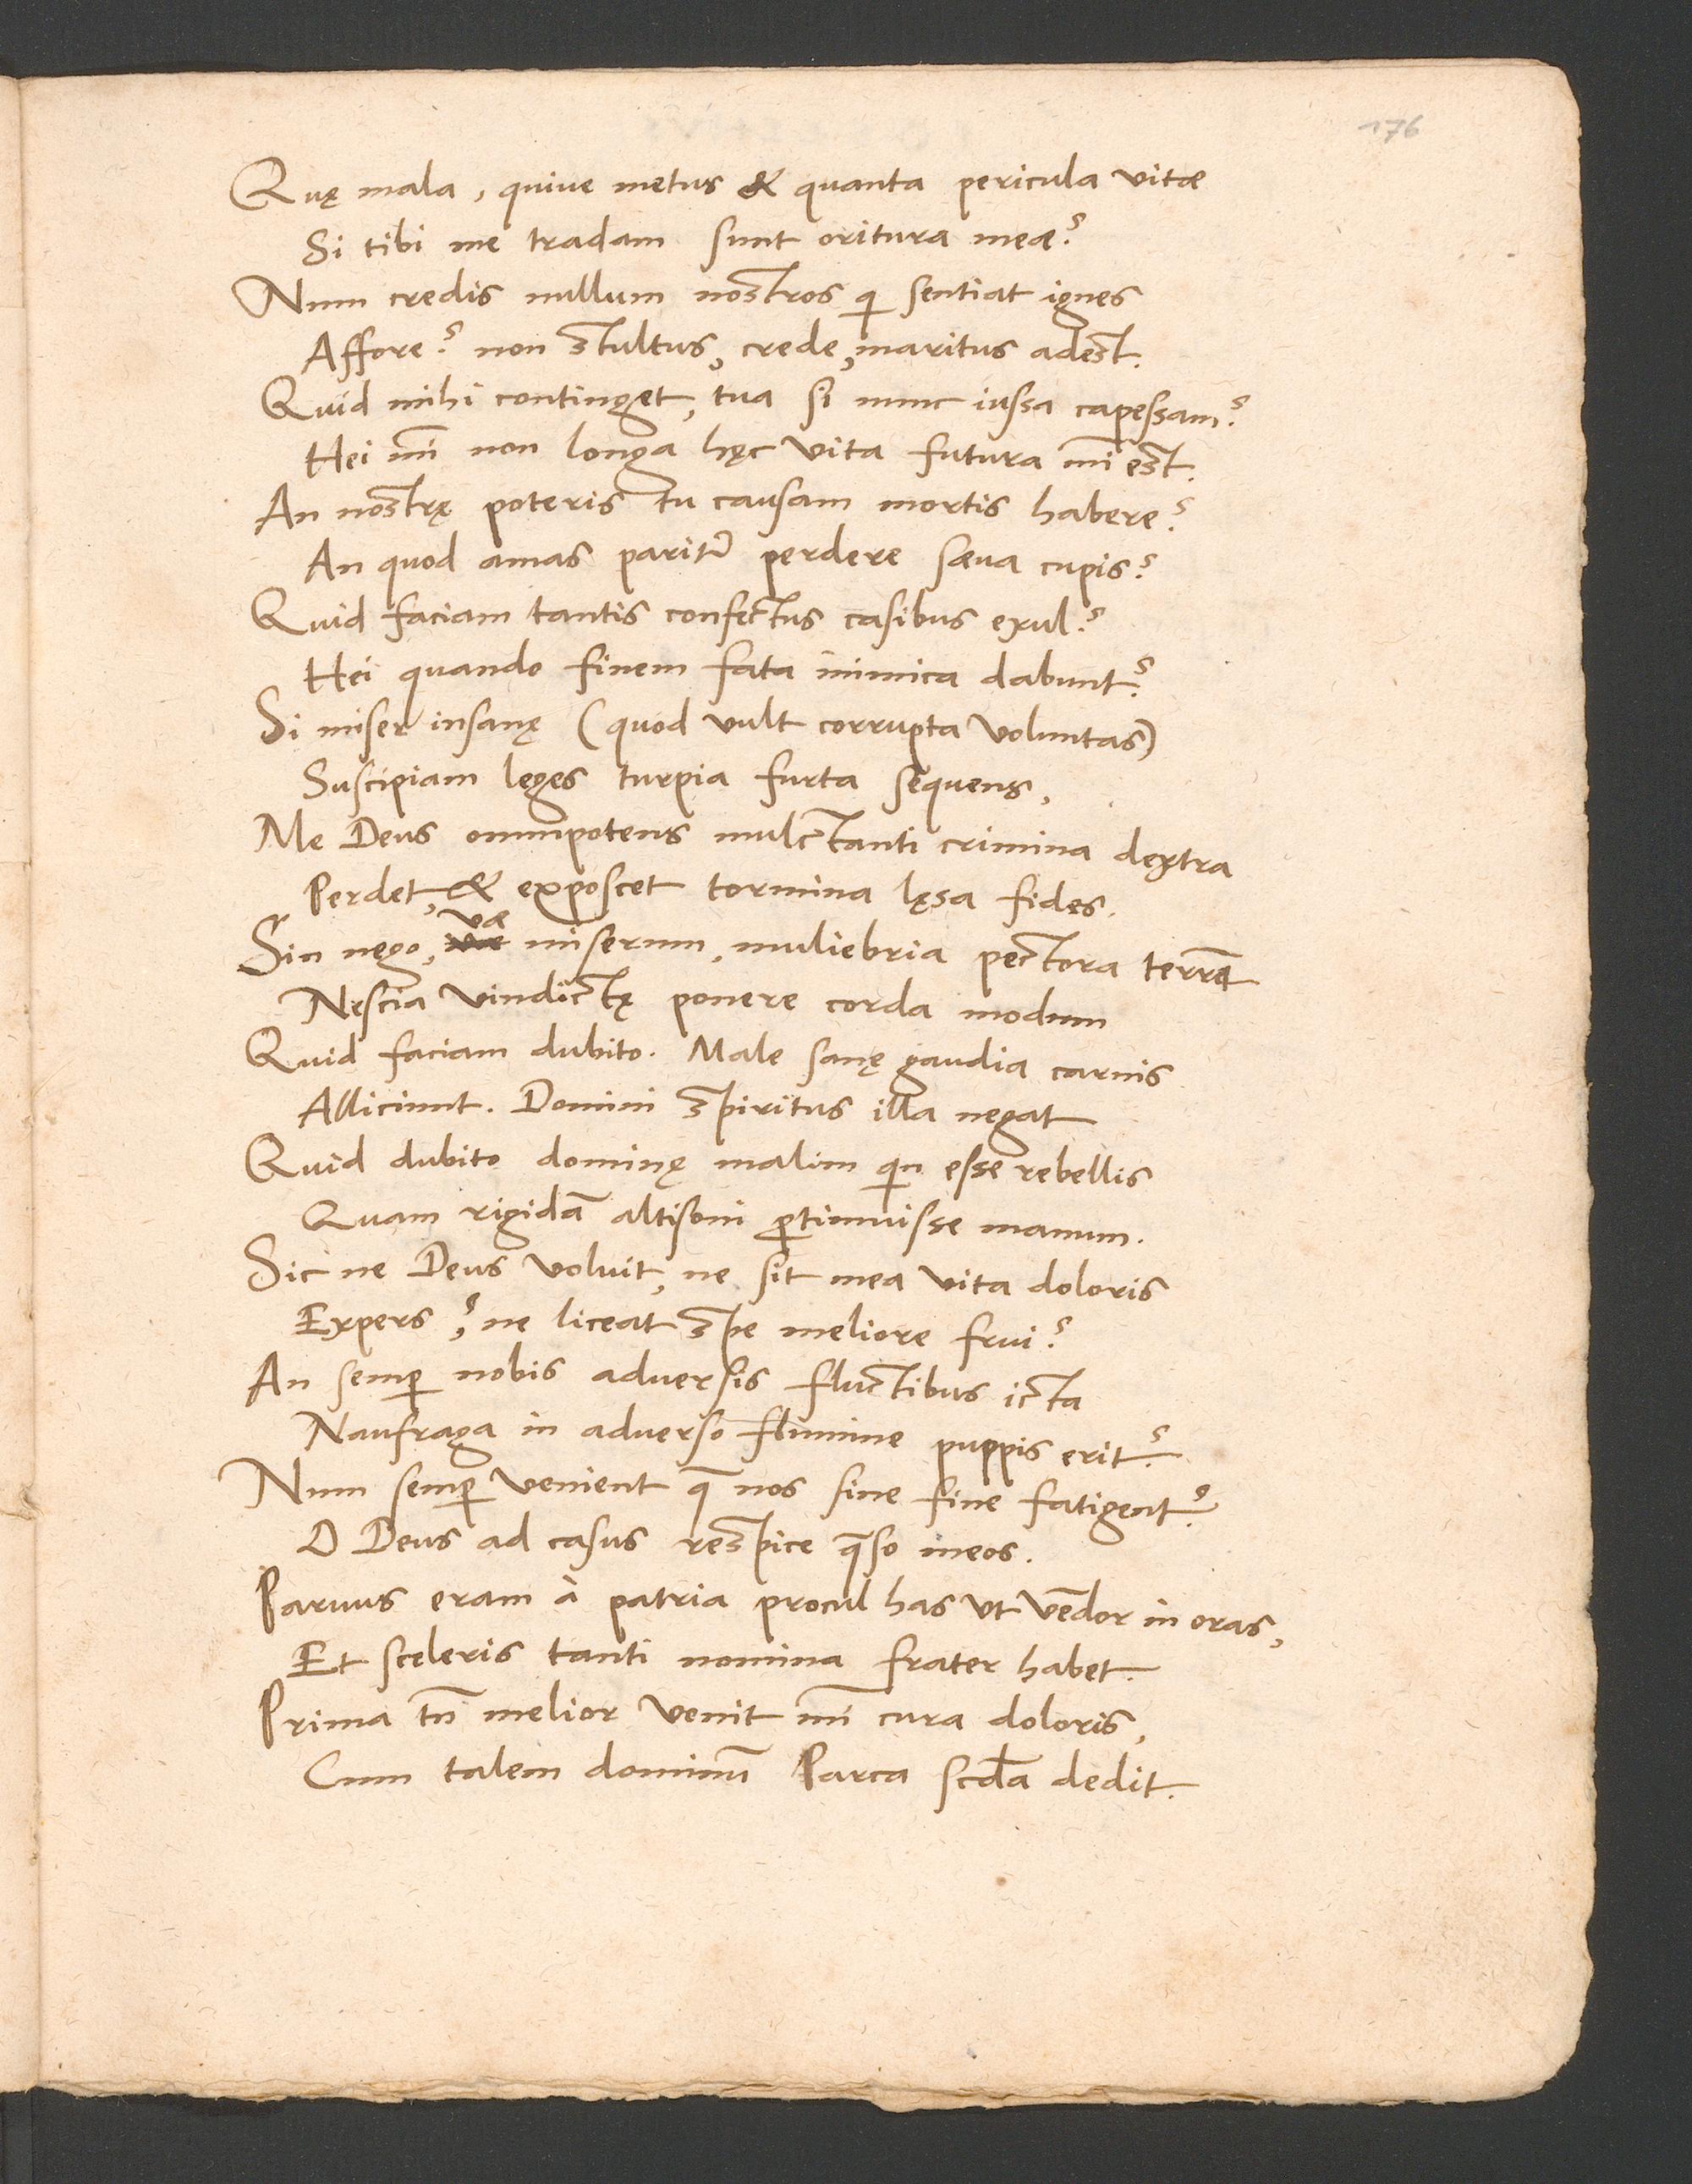 176
Quę mala, quiue metus & quanta pericula vitæ
Si tibi me tradam sunt oritura meæ?
Num credis nullum nostros q̄ sentiat ignes
Affore? non stultus, crede, maritus adest.
Quid mihi continget, tua si nunc iussa capessam?
Hei m̄i non longa hęc vita futura m̄i est.
An nostrę poteris tu causam mortis habere?
An quod amas parit̃ perdere sæua cupis?
Quid faciam tantis confectus casibus exul?
Hei quando finem fata inimica dabunt?
Si miser insanę (quod vult corrupta voluntas)
Suscipiam leges turpia furta sequens,
Me Deus omnipotens mulctanti crimina dextra
Perdet, & exposcet tormina lęsa fides.
Sin nego, væ miserum, muliebria pectora terrēt
Nescia vindictę ponere corda modum
Quid faciam dubito. Male sanę gaudia carnis
Alliciunt. Domini spiritus illa negat
Quid dubito dominę malim q̄n esse rebellis
Quam rigidā altisoni ꝑtimuisse manum.
Sic ne Deus voluit, ne sit mea vita doloris
Expers?, ne liceat spe meliore frui?
An semꝑ nobis aduersis fluctibus icta
Naufraga in aduerso flumine puppis erit?
Num semꝑ venient q̄ nos sine fine fatigent?
O Deus ad casus respice q̄so meos.
Paruus eram à patria procul has vt vēdor in oras,
Et sceleris tanti nomina frater habet.
Prima tn̄ melior venit m̄i cura doloris,
Cum talem dominū Parca scd̄a dedit.